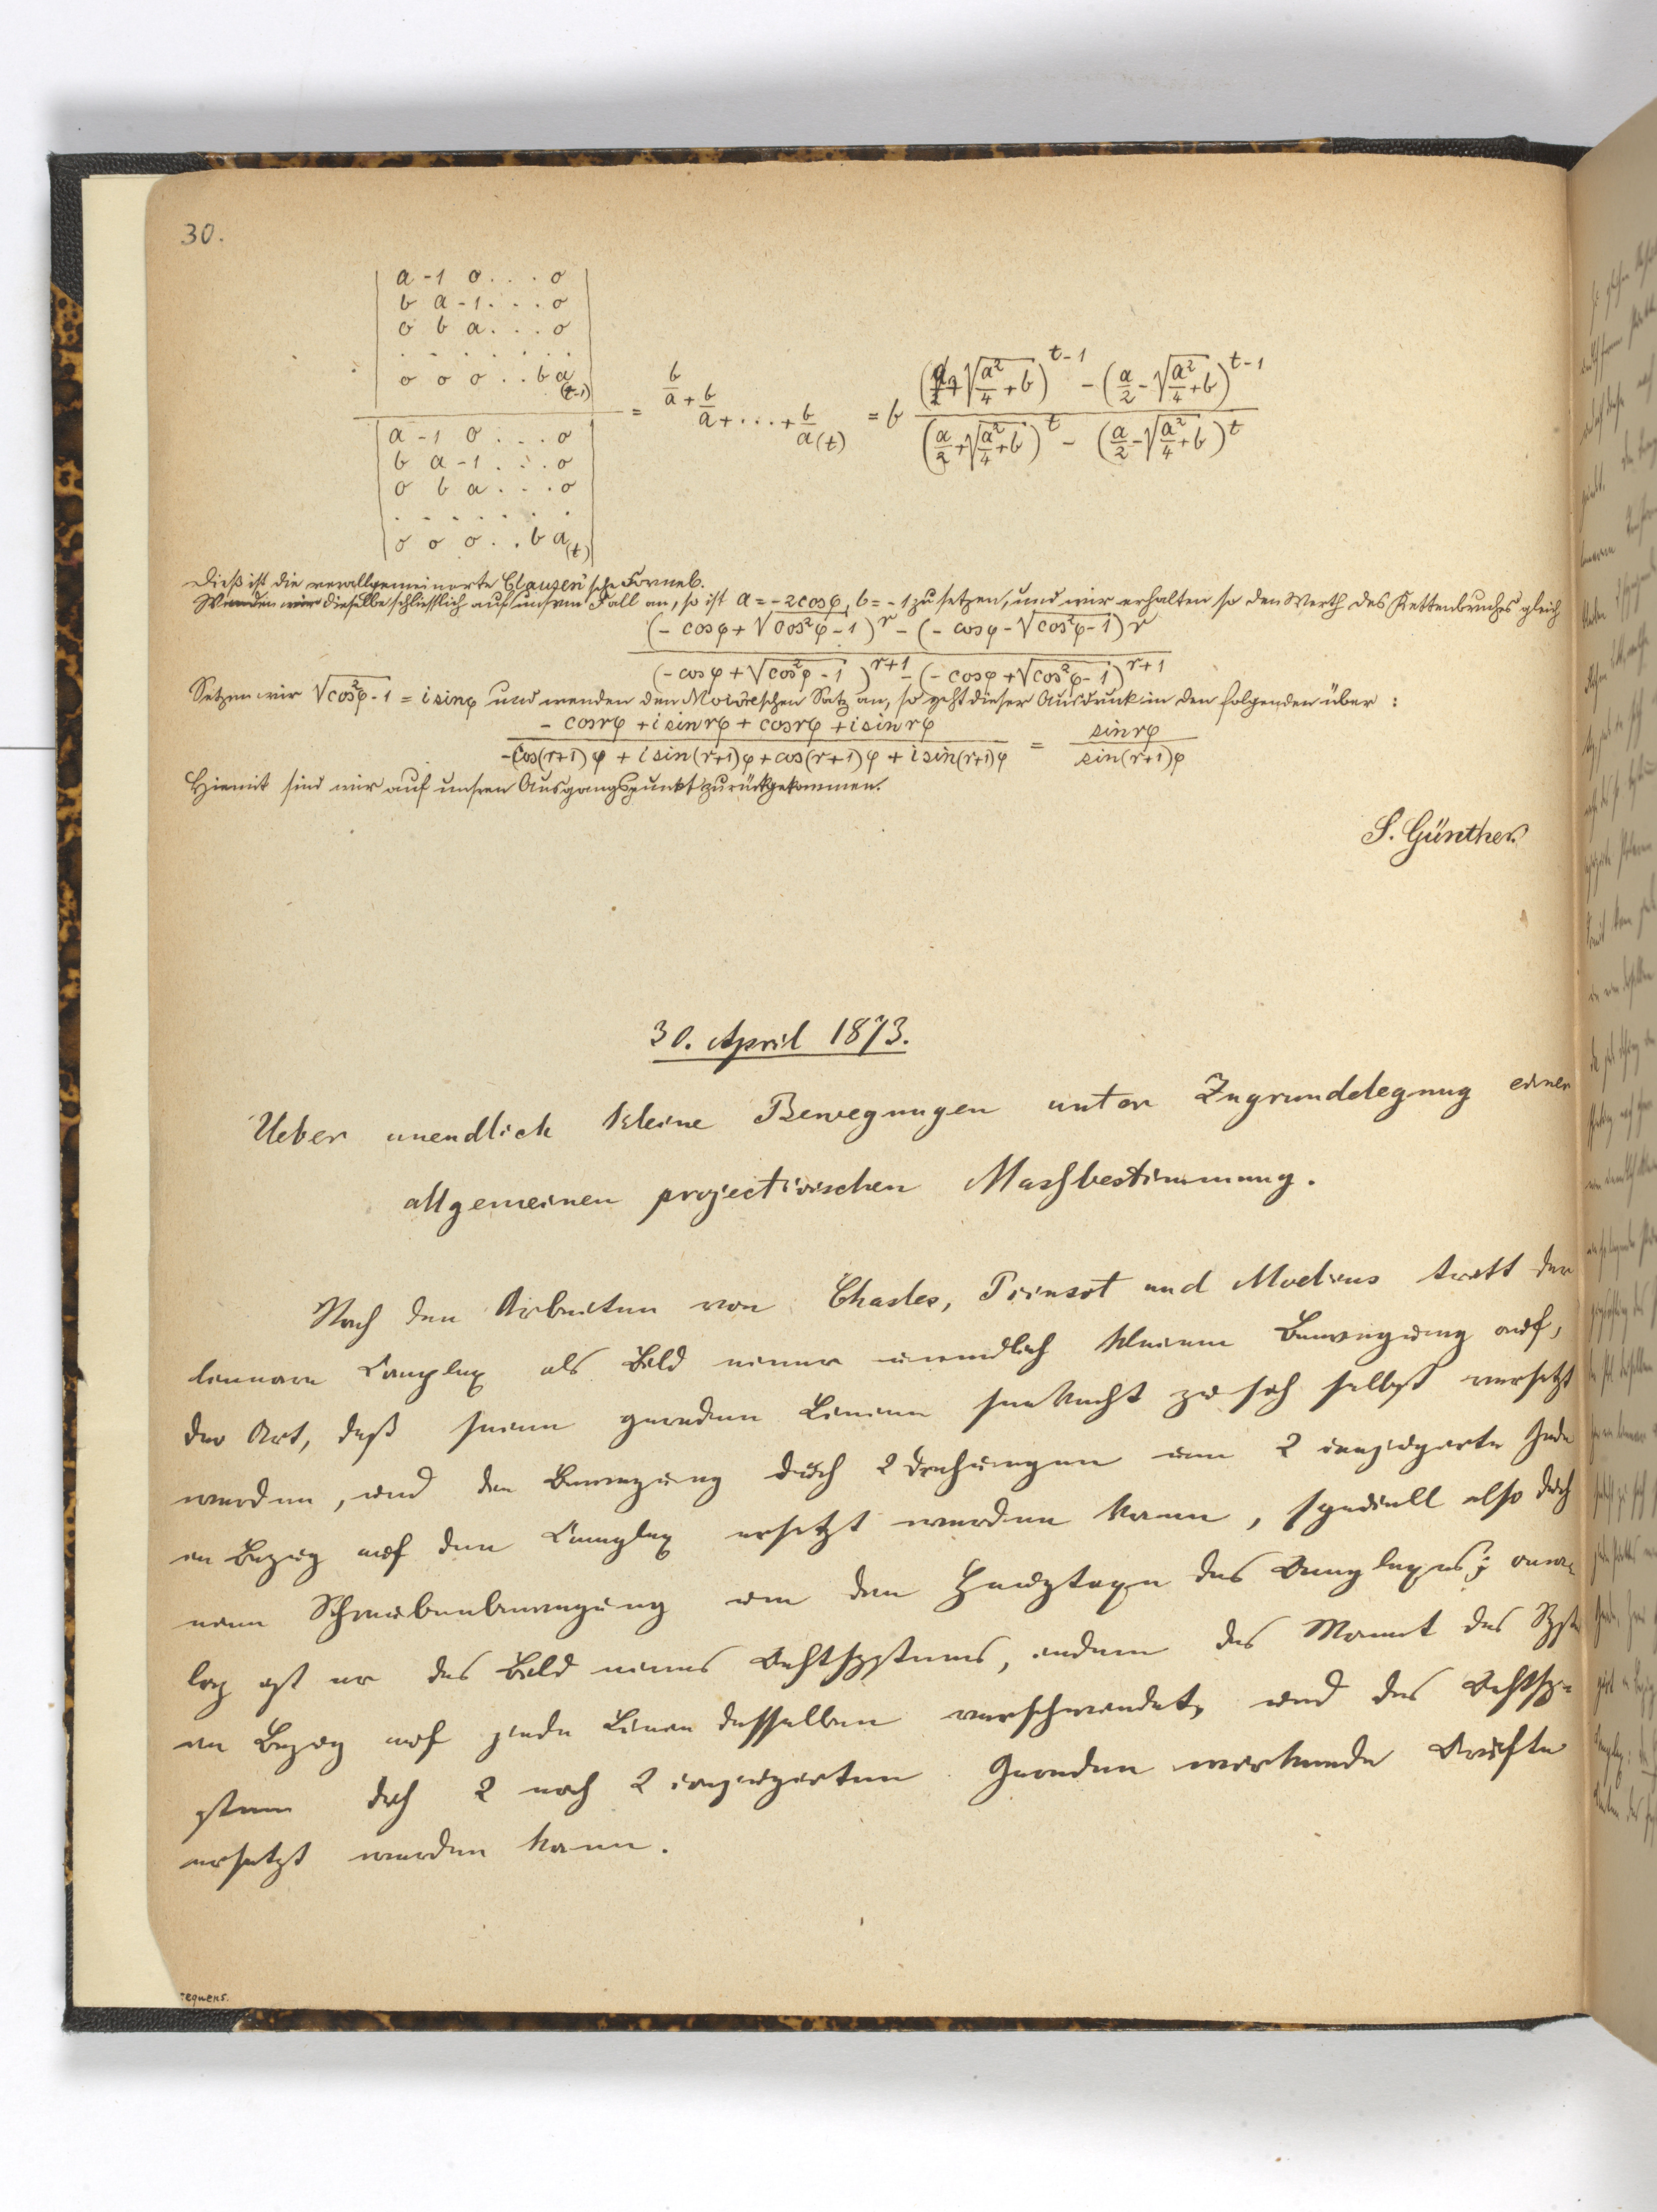 30.
a -1 0 . . . 0
b a -1 . . . 0
0 b a . . . 0
. . . . . . .
0 0 0 . . b a (t-1)
a -1 0 . . . 0
b a -1 . . . 0
0 b a . . . 0
. . . . . . .
0 0 0 . . b a (t)
= b/a + b/a + . . . + b/a (t) = b ((a/2 + √(a²/4 + b))^(t-1) - (a/2 - √(a²/4 + b))^(t-1)) / ((a/2 + √(a²/4 + b))^t - (a/2 - √(a²/4 + b))^t)
Dieß ist die verallgemeinerte Clausen'sche Formel.
Wenden wir dieselbe schliesslich auf unsren Fall an, so ist a = -2cosφ, b = -1 zu setzen, und wir erhalten so den Werth des Kettenbruches gleich
(- cosφ + √(cos²φ - 1))^r - (- cosφ - √(cos²φ - 1))^r
(- cosφ + √(cos²φ - 1))^(r+1) - (- cosφ + √(cos²φ - 1))^(r+1)
Setzen wir √(cos²φ - 1) = i sinφ und wenden den Moivreschen Satz an, so geht dieser Ausdruck in den folgenden über :
- cosrφ + i sinrφ + cosrφ + i sinrφ
-cos(r+1)φ + i sin(r+1)φ + cos(r+1)φ + i sin(r+1)φ = sinrφ / sin(r+1)φ
Hiemit sind wir auf unsren Ausgangspunkt zurückgekommen.
S. Günther.
30. April 1873.
Ueber unendlich kleine Bewegungen unter Zugrundelegung einer
allgemeinen projectivischen Massbestimmung.
Nach den Arbeiten von Chasles, Poinsot und Moebius tritt der
lineare Complex als Bild einer unendlich kleinen Bewegung auf,
der Art, daß seine geraden Linien senkrecht zu sich selbst versetzt
werden, und die Bewegung durch 2 Drehungen um 2 conjugirte Gerade
in Bezug auf den Complex ersetzt werden kann, speciell also durch
eine Schraubenbewegung um den Hauptaxe des Complexes; ana-
log ist er das Bild eines Kraftsystems, indem das Moment des Syst
in Bezug auf jede Linie desselben verschwindet, und das Kraftsy-
stem durch 2 nach 2 conjugirten Geraden wirkende Kräfte
ersetzt werden kann.